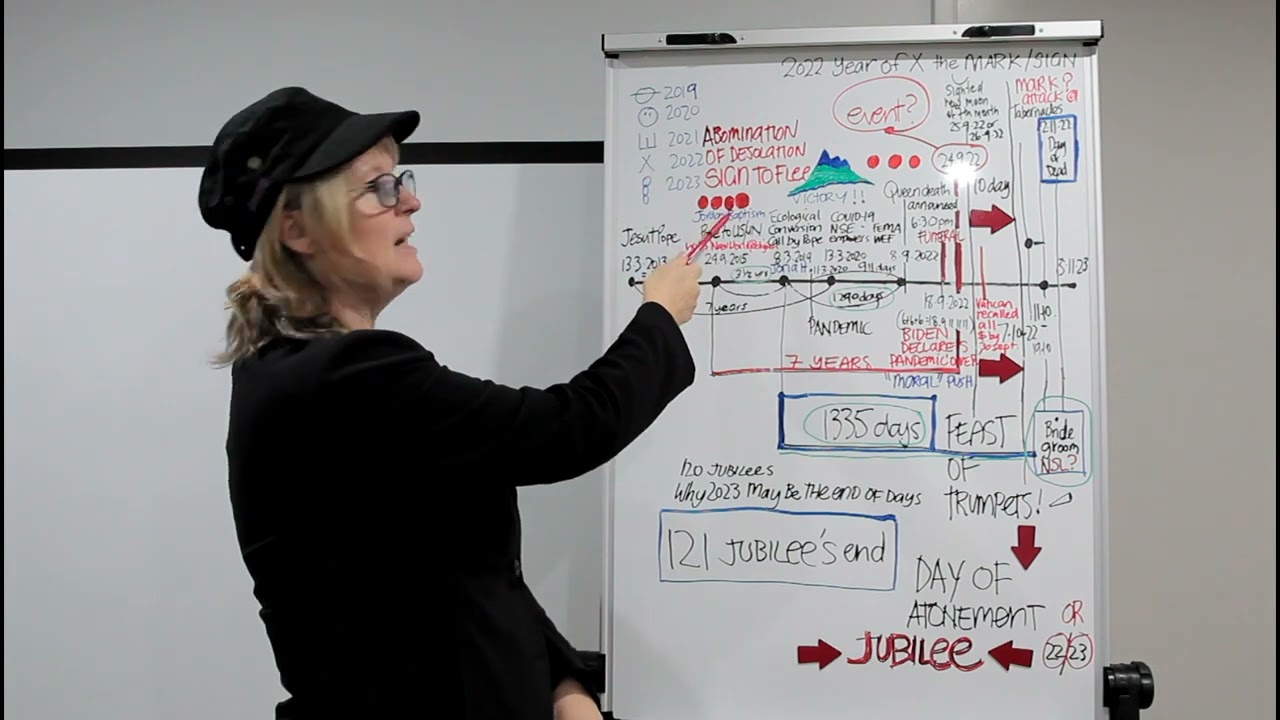 2022 Year of X the MARK/SIGN
2019
2020
2021
2022
2023
ABOMINATION
OF DESOLATION
SIGN TO FLEE
event?
Sighted
new moon
of 7th month
25.9.22 or
26.9.22
MARK?
attack @
Tabernacles
2.11.22
Day
of
Dead
24.9.22
VICTORY!!
10 day
Queen death
announced
6:30pm
FUNERAL
8.9.2022
Jesuit Pope
13.3.2013
Jordan Baptism
Pope to US/UN
24.9.2015
Ecological
Conversion
Call by Pope
8.3.2019
Jonah
COVID-19
NSE - FEMA
empowers WEF
13.3.2020
11.3.2020
911 days
3 1/2 yrs
7 years
1290 days
8.11.23
PANDEMIC
18.9.2022
BIDEN
DECLARES
PANDEMIC OVER
"MORAL" PUSH
Vatican
recalled
all
$ by
30 sept.
7.10.22
7 YEARS
1335 days
FEAST
OF
TRUMPETS!
Bride
groom
NSL?
120 JUBILEES
Why 2023 May Be The END OF DAYS
121 JUBILEE'S end
DAY OF
ATONEMENT OR
JUBILEE 22/23